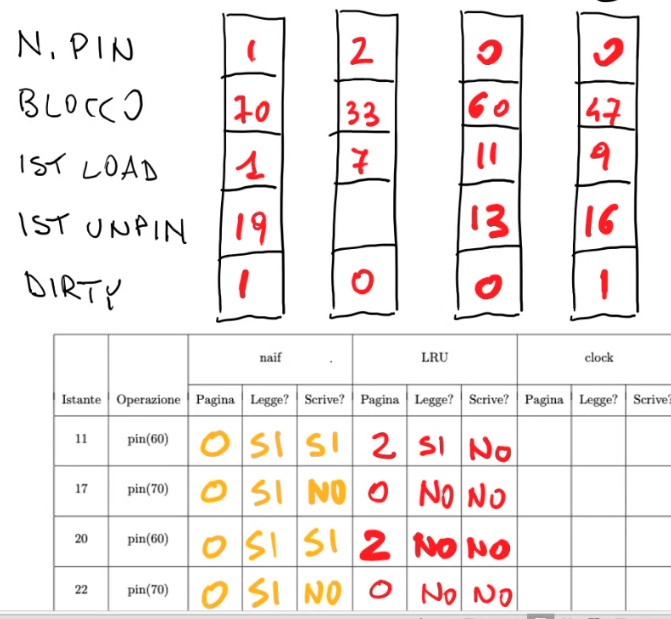 N. PIN 1 2 0 0
BLOCCO 70 33 60 47
IST LOAD 1 7 11 9
IST UNPIN 19 13 16
DIRTY 1 0 0 1
naif LRU clock
Istante Operazione Pagina Legge? Scrive? Pagina Legge? Scrive? Pagina Legge? Scrive?
11 pin(60) 0 SI SI 2 SI No
17 pin(70) 0 SI NO 0 NO NO
20 pin(60) 0 SI SI 2 NO NO
22 pin(70) 0 SI NO 0 No NO